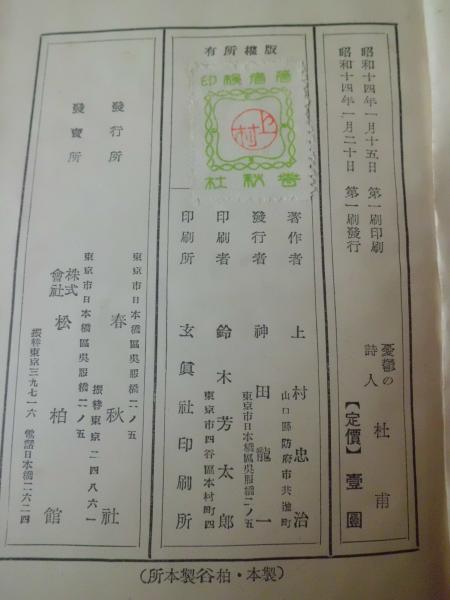 昭和十四年一月十五日 第一刷印刷
昭和十四年一月二十日 第一刷發行
憂鬱の詩人 杜甫
【定價】壹圓
版權所有
春秋社
上村
著作者 上村忠治
山口縣防府市共進町
發行者 神田龍一
東京市日本橋區吳服橋二ノ五
印刷者 鈴木芳太郎
東京市四谷區本村町四
印刷所 玄眞社印刷所
發行所 春秋社
東京市日本橋區吳服橋二ノ五
振替東京二四八六一
發賣所 株式會社 松柏館
東京市日本橋區吳服橋二ノ五
振替東京三九七一六 電話日本橋二六二四
(製本・柏谷製本所)